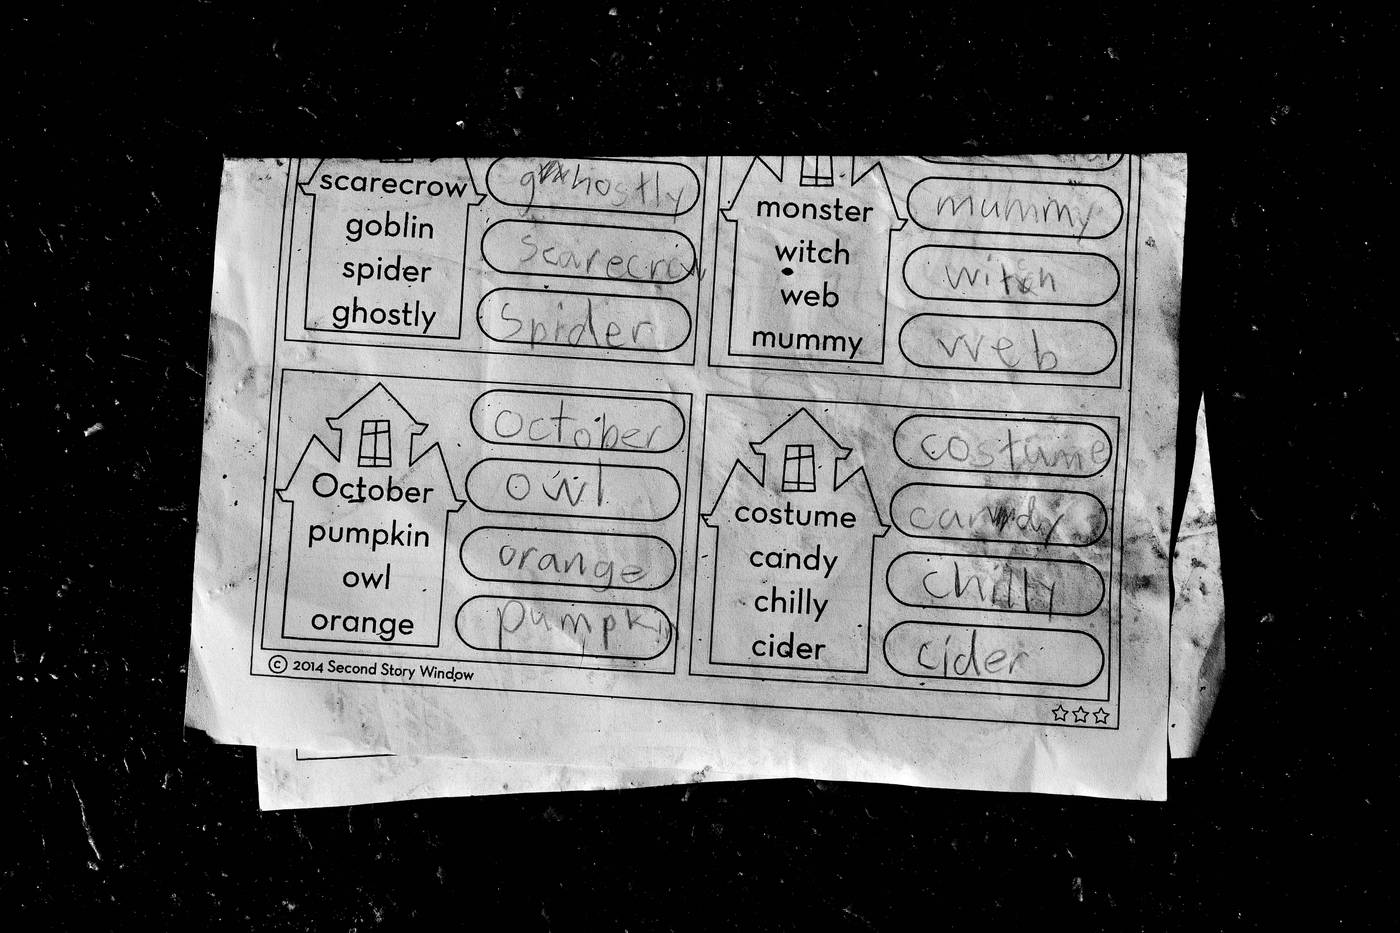 scarecrow
goblin
spider
ghostly
ghostly
scarecrow
spider
monster
witch
web
mummy
mummy
witch
web
October
pumpkin
owl
orange
October
owl
orange
pumpkin
costume
candy
chilly
cider
costume
candy
chilly
cider
© 2014 Second Story Window